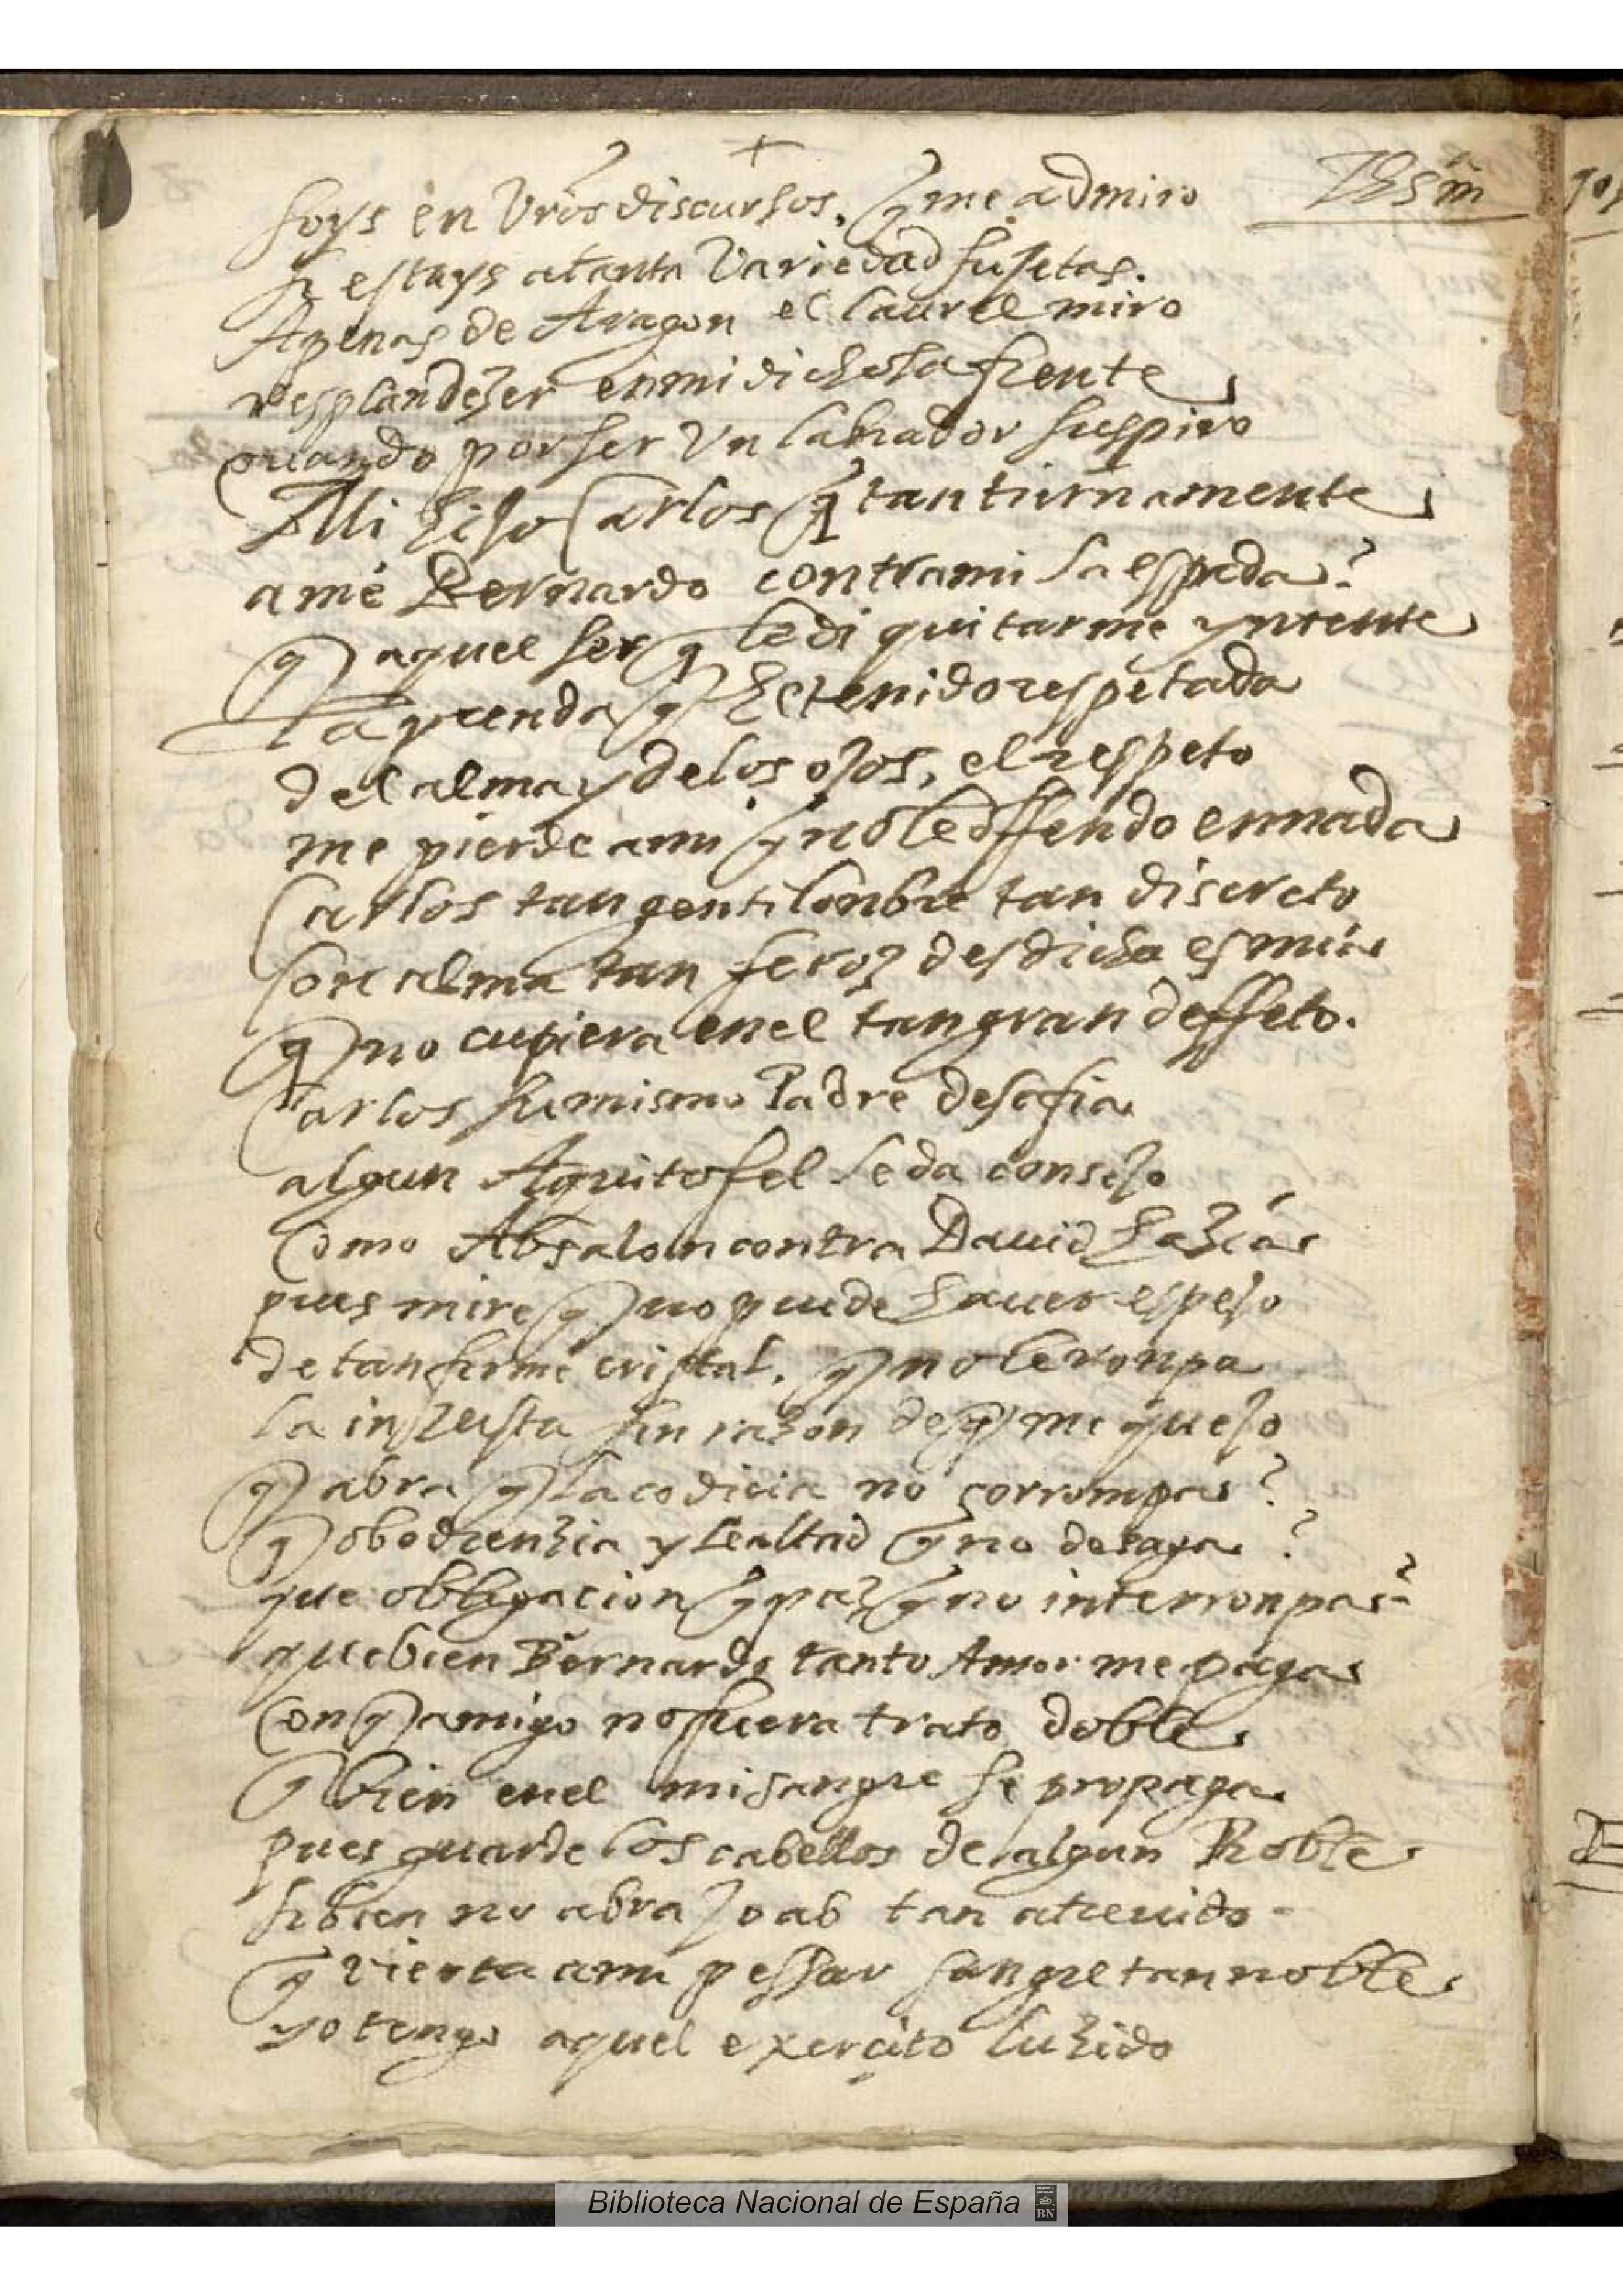 +
soys en Vrõs discursos, q̃ me admiro
si estays a tanta Variedad sujetas.
Apenas de Aragon el laurel miro
resplandezer en mi dichosa frente
quando por ser Vn labrador suspiro
Mi hijo Carlos q̃ tan tiernamente
amé Bernardo contra mi la espada?
q̃ aquel ser q̃ le di quitarme yntente
la prenda q̃ he tenido respetada
del alma y de los ojos, el respeto
me pierde a mi q̃ no le offendo en nada
Carlos tan gentilonbre tan discreto
con alma tan feroz desdicha es mia
q̃ no cupiera en el tan gran deffeto.
Carlos su mismo Padre desafia
algun Aquitofel le da consejo
Como Absalon contra Dauid hazia
pues mire q̃ no puede hauer espejo
de tan firme cristal, q̃ no le ronpa
la injusta sin razon de q̃ me quejo
q̃ abra q̃ la codicia no corrompa?
q̃ obedienzia y lealtad q̃ no desaga?
que obligacion q̃ paz q̃ no interronpa?
que bien Bernardo tanto Amor me paga
Con q̃ amigo no fuera trato doble
q̃ bien en el mi sangre se propaga
pues guarde los cabellos de algun Roble
si bien no abra Joab tan atreuido
q̃ vierta a mi pessar sangre tan noble
yo tengo aquel exercito luzido
Biblioteca Nacional de España
BN